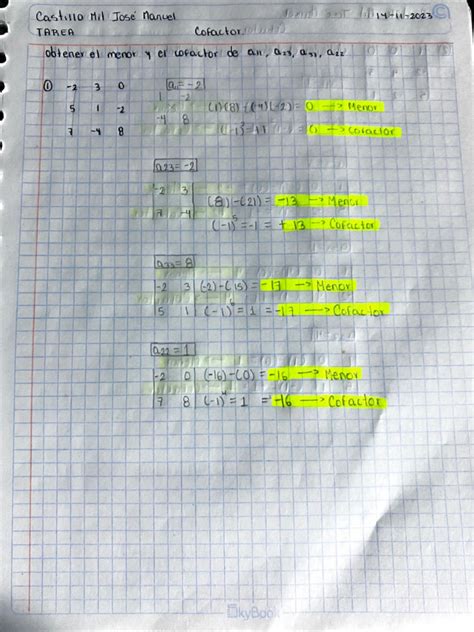 Castillo Mil José Manuel 14-11-2023
TAREA Cofactor
obtener el menor y el cofactor de a11, a23, a33, a22
① -2 3 0 a = -2
5 1 -2 1 -2 (1)(8) - (-4)(-2) = 0 → Menor
7 -4 8 -4 8 (-1)² = 1 = 0 → Cofactor
a23 = -2
-2 3 (8) - (21) = -13 → Menor
7 -4 (-1)⁵ = -1 = + 13 → Cofactor
a33 = 8
-2 3 (-2) - (15) = -17 → Menor
5 1 (-1)⁶ = 1 = -17 → Cofactor
a22 = 1
-2 0 (-16) - (0) = -16 → Menor
7 8 (-1)⁴ = 1 = -16 → Cofactor
SkyBook